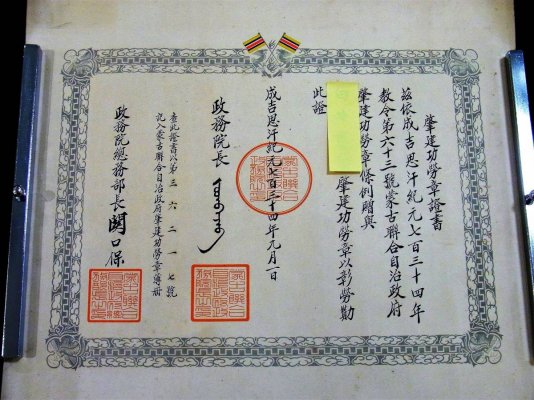 肇建功勞章證書
茲依成吉思汗紀元七百三十四年
教令第六十三號蒙古聯合自治政府
肇建功勞章條例贈與
肇建功勞章以彰勞勩
此證
成吉思汗紀元七百三十四年元月一日
政務院長
查此證書以第三六二一七號
記入蒙古聯合自治政府肇建功勞章簿冊
政務院總務部長 関口保